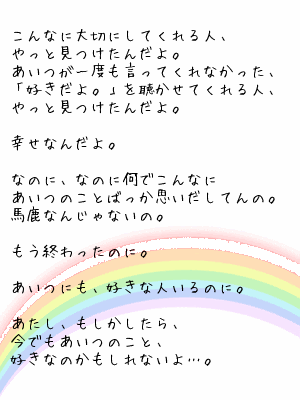 こんなに大切にしてくれる人、
やっと見つけたんだよ。
あいつが一度も言ってくれなかった、
「好きだよ。」を聴かせてくれる人、
やっと見つけたんだよ。
幸せなんだよ。
なのに、なのに何でこんなに
あいつのことばっか思いだしてんの。
馬鹿なんじゃないの。
もう終わったのに。
あいつにも、好きな人いるのに。
あたし、もしかしたら、
今でもあいつのこと、
好きなのかもしれないよ…。